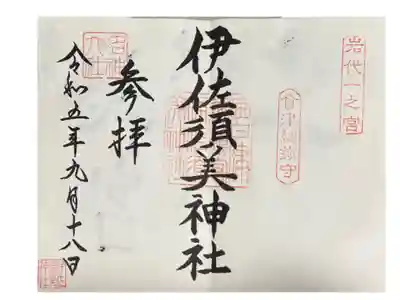 岩代一之宮
伊佐須美神社
参拝
令和五年九月十八日